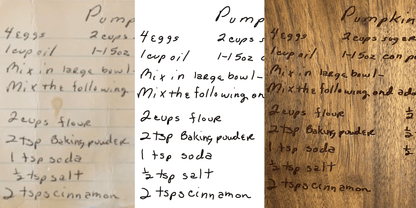 Pump
4 eggs 2 cups
1 cup oil 1-15oz
Mix in large bowl-
Mix the following
2 cups flour
2 tsp Baking powder
1 tsp soda
½ tsp salt
2 tsps cinnamon
Pump
4 eggs 2 cups s
1 cup oil 1-15oz c
Mix in large bowl-
Mix the following an
2 cups flour
2 tsp Baking powder
1 tsp soda
½ tsp salt
2 tsps cinnamon
Pumpkin
4 eggs 2 cups sugar
1 cup oil 1-15oz can pu
Mix in large bowl-
Mix the following and add
2 cups flour
2 tsp Baking powder
1 tsp soda
½ tsp salt
2 tsps cinnamon